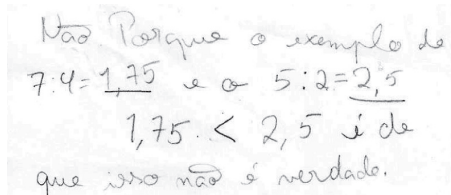 Não Porque o exemplo de
7:4=1,75 e o 5:2=2,5
1,75 < 2,5 é de
que isso não é verdade.